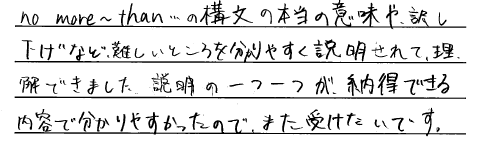 no more～than…の構文の本当の意味や、訳し
下げなど、難しいところを分かりやすく説明されて、理
解できました。説明の一つ一つが、納得できる
内容で分かりやすかったので、また受けたいです。